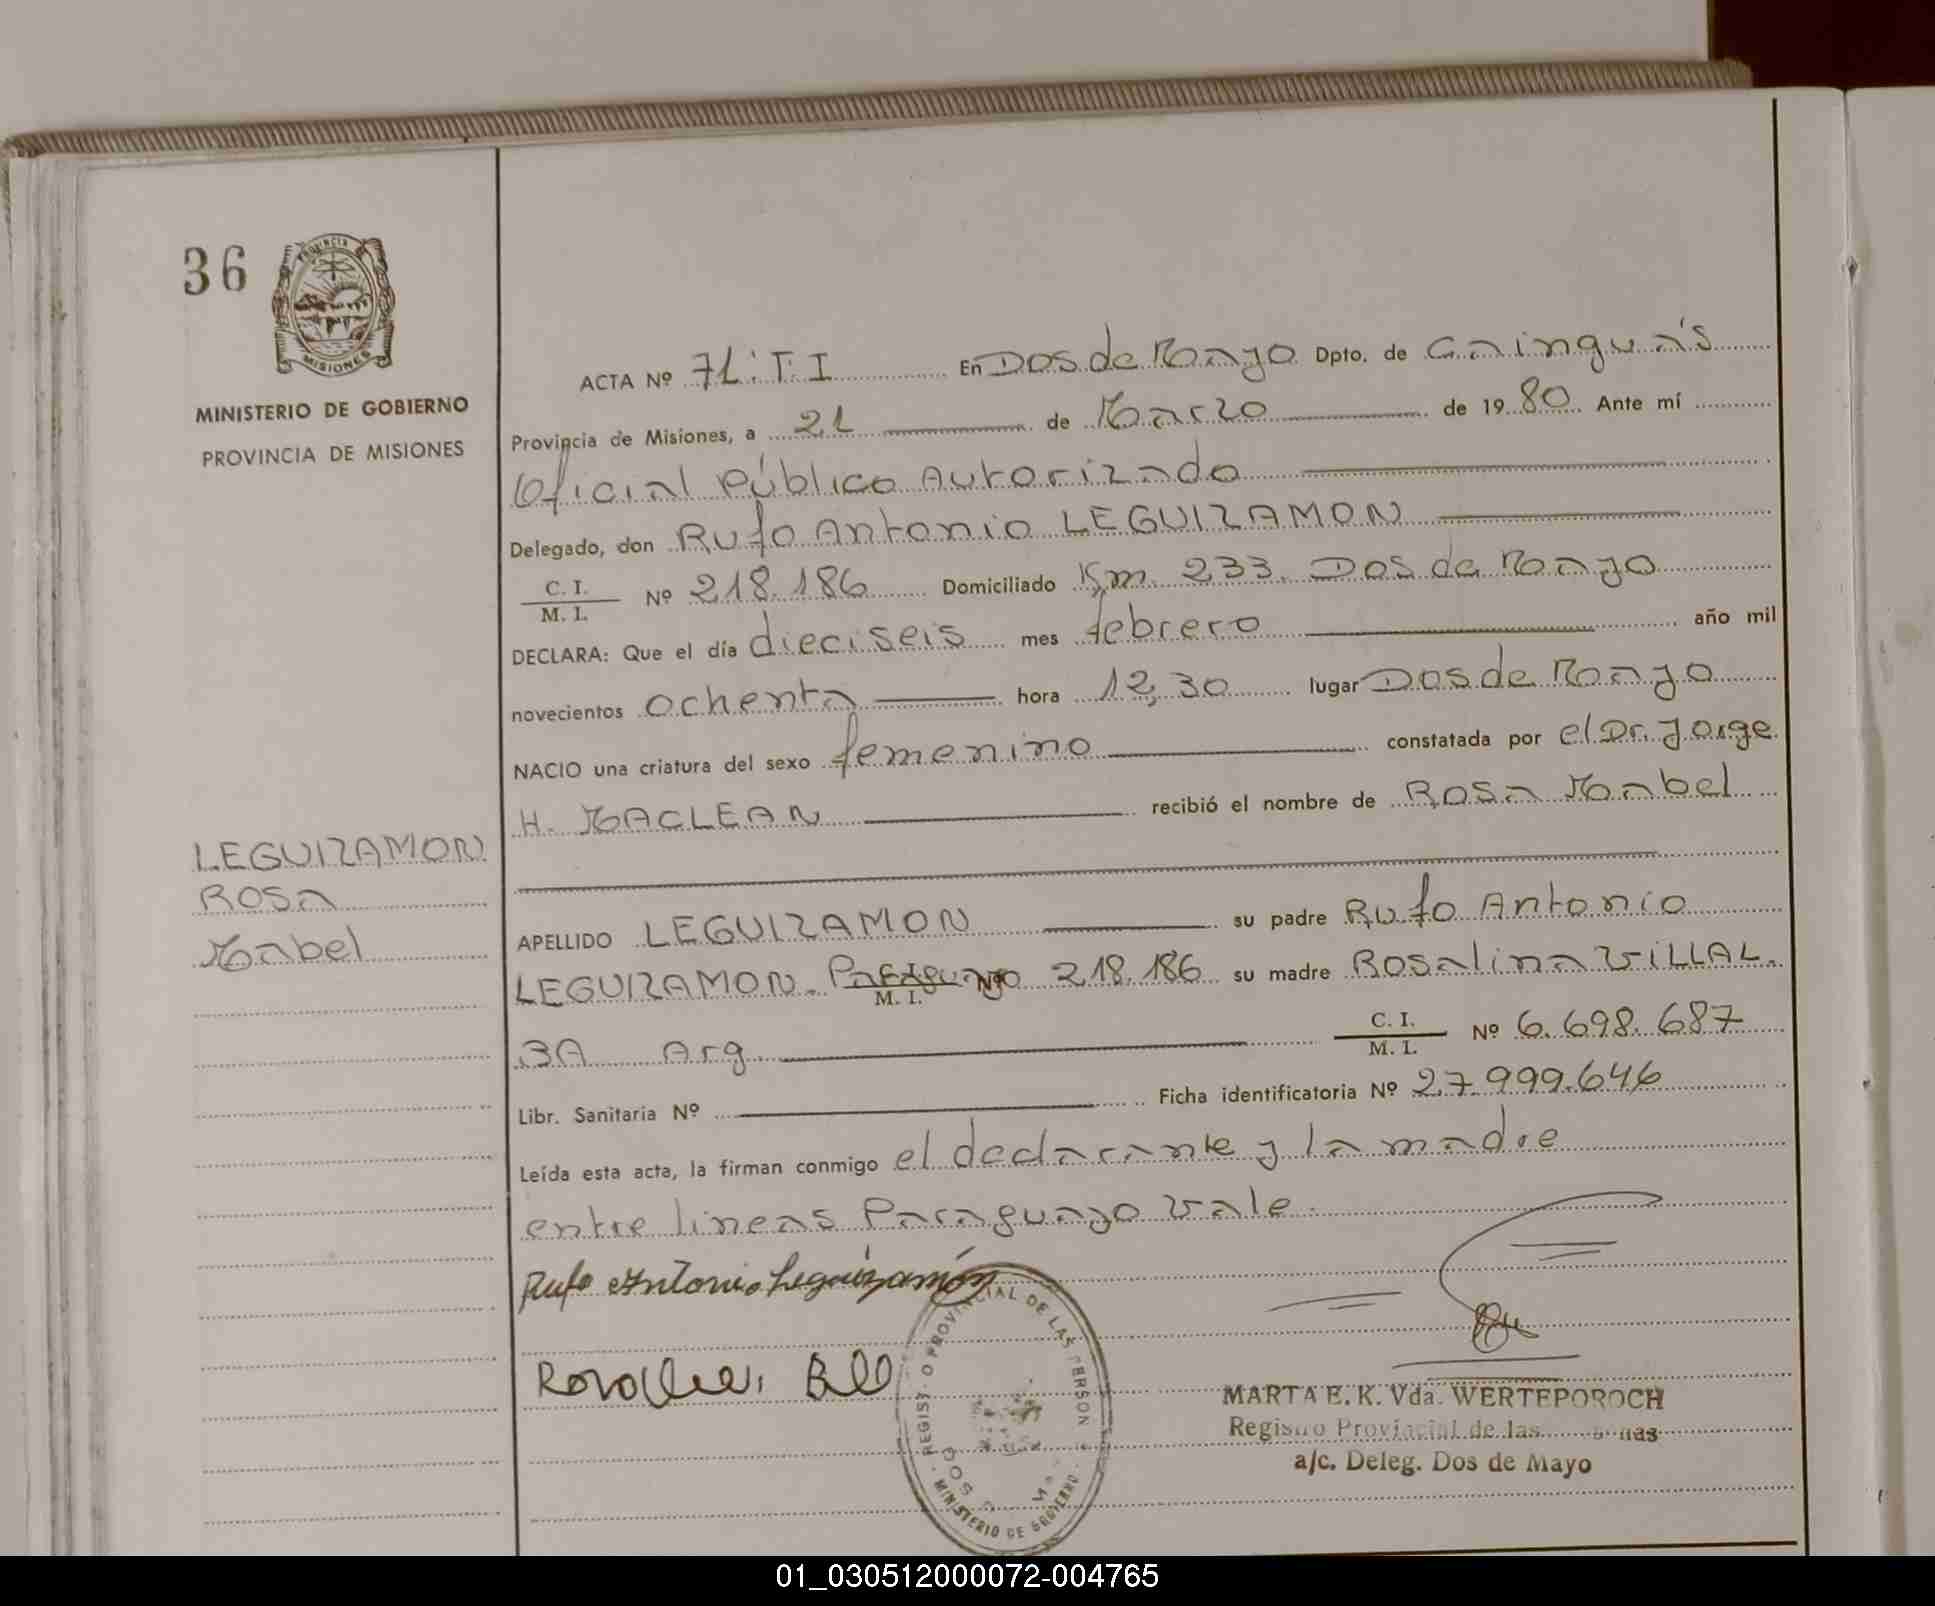 36
PROVINCIA DE MISIONES
MINISTERIO DE GOBIERNO
PROVINCIA DE MISIONES
ACTA Nº 71:T.I En Dos de Mayo Dpto. de Cainguá's
Provincia de Misiones, a 21 de Marzo de 1980. Ante mí
Oficial Público Autorizado
Delegado, don Rufo Antonio LEGUIZAMON
C. I.
M. I. Nº 218.186 Domiciliado Km. 233. Dos de Mayo
DECLARA: Que el día dieciseis mes febrero año mil
novecientos ochenta hora 12,30 lugar Dos de Mayo
NACIO una criatura del sexo femenino constatada por el Dr. Jorge
H. MACLEAN recibió el nombre de Rosa Mabel
LEGUIZAMON
Rosa
Mabel
APELLIDO LEGUIZAMON su padre Rufo Antonio
LEGUIZAMON. Paraguayo M. I. Nº 218.186 su madre Rosalina VILLAL-
BA Arg C. I.
M. I. Nº 6.698.687
Libr. Sanitaria Nº Ficha identificatoria Nº 27.999.646
Leída esta acta, la firman conmigo el declarante y la madre
entre lineas Paraguayo vale.
Rufo Antonio Leguizamón
REGIST O PROVINCIAL DE LAS PERSON
MINISTERIO DE GOBIERNO
MARTA E. K. Vda. WERTEPOROCH
Registro Provincial de las
a/c. Deleg. Dos de Mayo
01_030512000072-004765